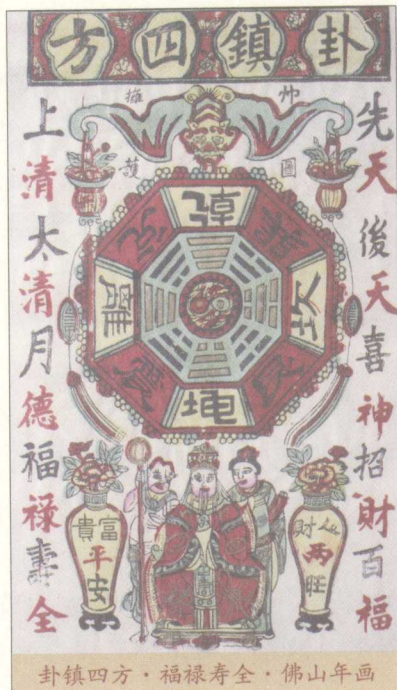 卦鎮四方
先天後天喜神招財百福
上清太清月德福祿壽全
擁護
圖
乾
坎
艮
坤
離
富貴
平
安
財
两
旺
卦镇四方·福禄寿全·佛山年画